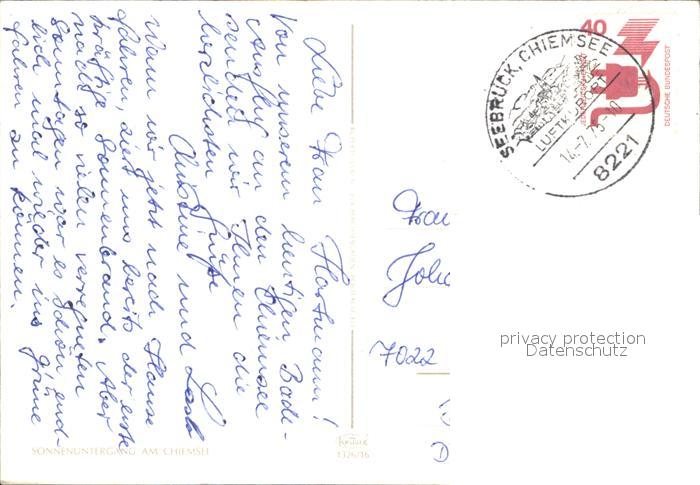 Liebe Frau Hartmann!
Von unserem heutigen Bade-
Ausflug an den Chiemsee
senden wir Ihnen die
herzlichsten Grüße
Christine und
Wenn wir jetzt nach Hause
fahren, ziert uns bereits der erste
kräftige Sonnenbrand. Aber
nach so vielen verregneten
Sonntagen war es schön end-
lich mal wieder ins Grüne
fahren zu können.
SONNENUNTERGANG AM CHIEMSEE
Krüger
1326/16
40
DEUTSCHE BUNDESPOST
SEEBRUCK, CHIEMSEE
LUFTKURORT
14.-7.75-10
8221
Frau
Joha
7022
D
privacy protection
Datenschutz